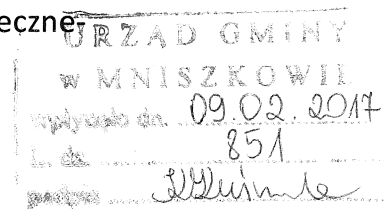 eczne-
URZĄD GMINY
w MNISZKOWIE
wpłynęło dn. 09.02.2017
L. dz. 851
podpis